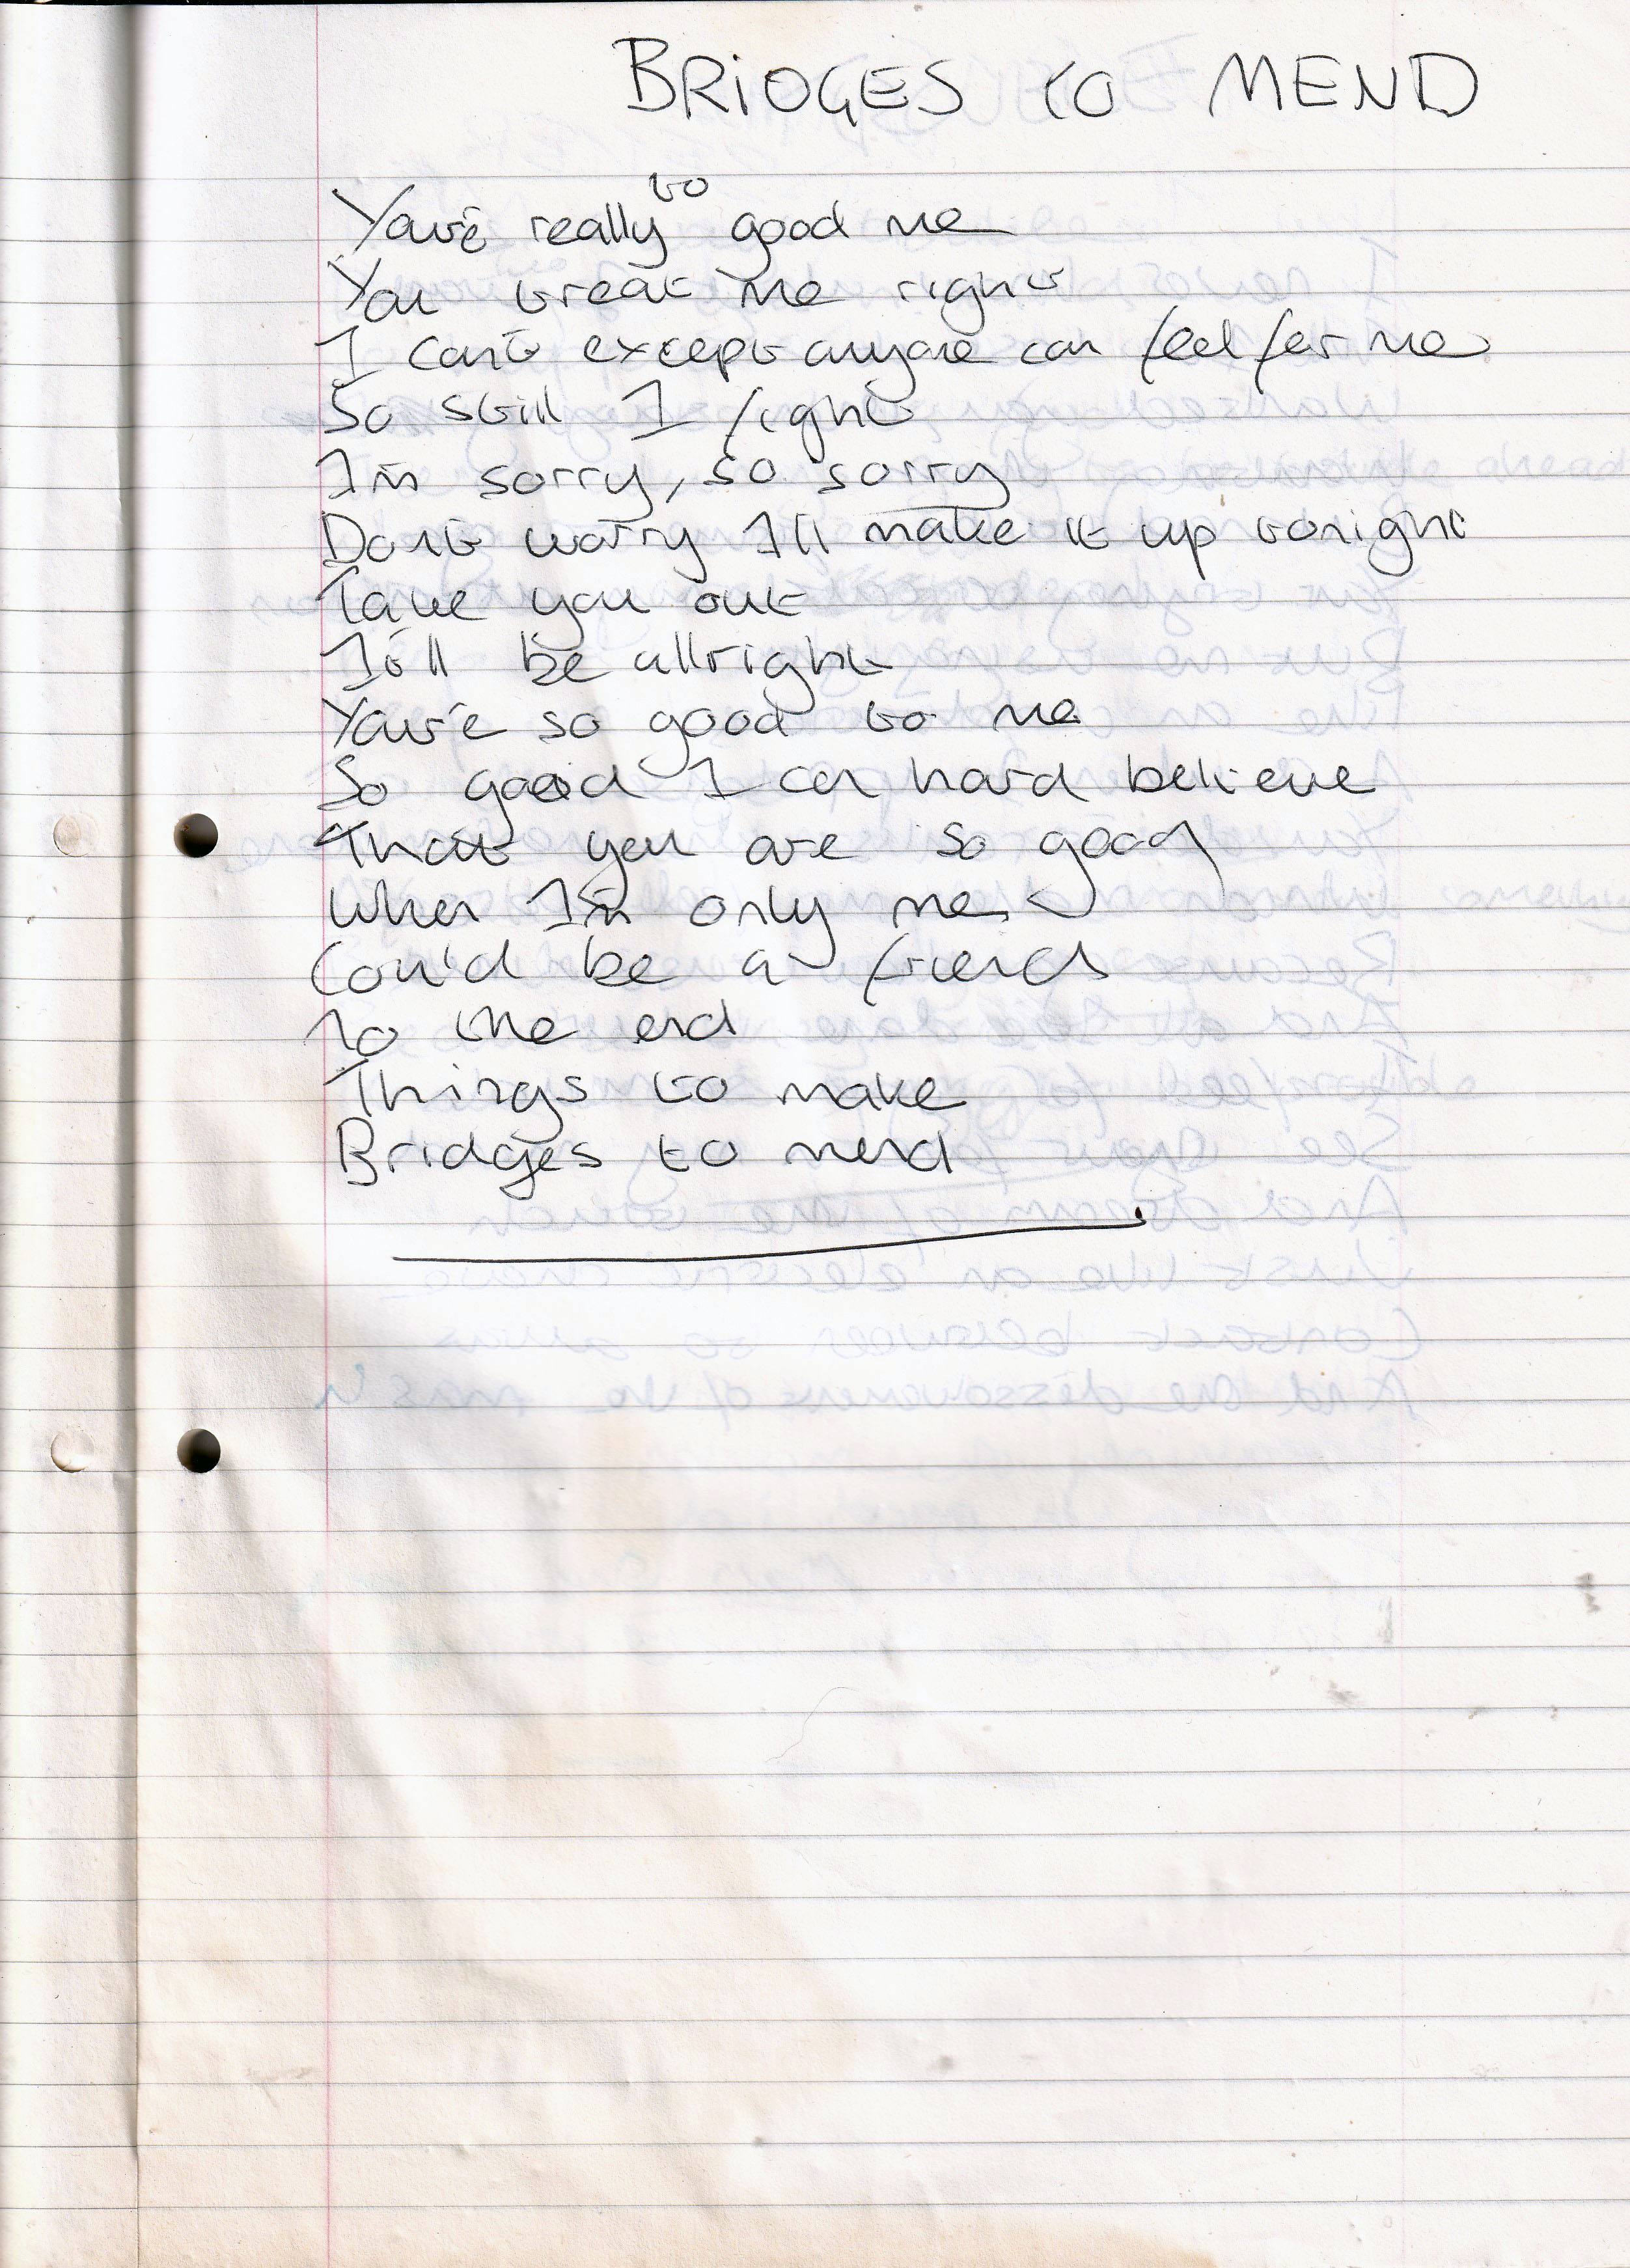 BRIDGES TO MEND
You're really to good me
You treat me right
I can't except anyone can feel for me
So still I fight
I'm sorry, so sorry
Don't worry I'll make it up tonight
Take you out
It'll be allright
You're so good to me
So good I can hard believe
That you are so good
When I'm only me
Could be a friend
To the end
Things to make
Bridges to mend